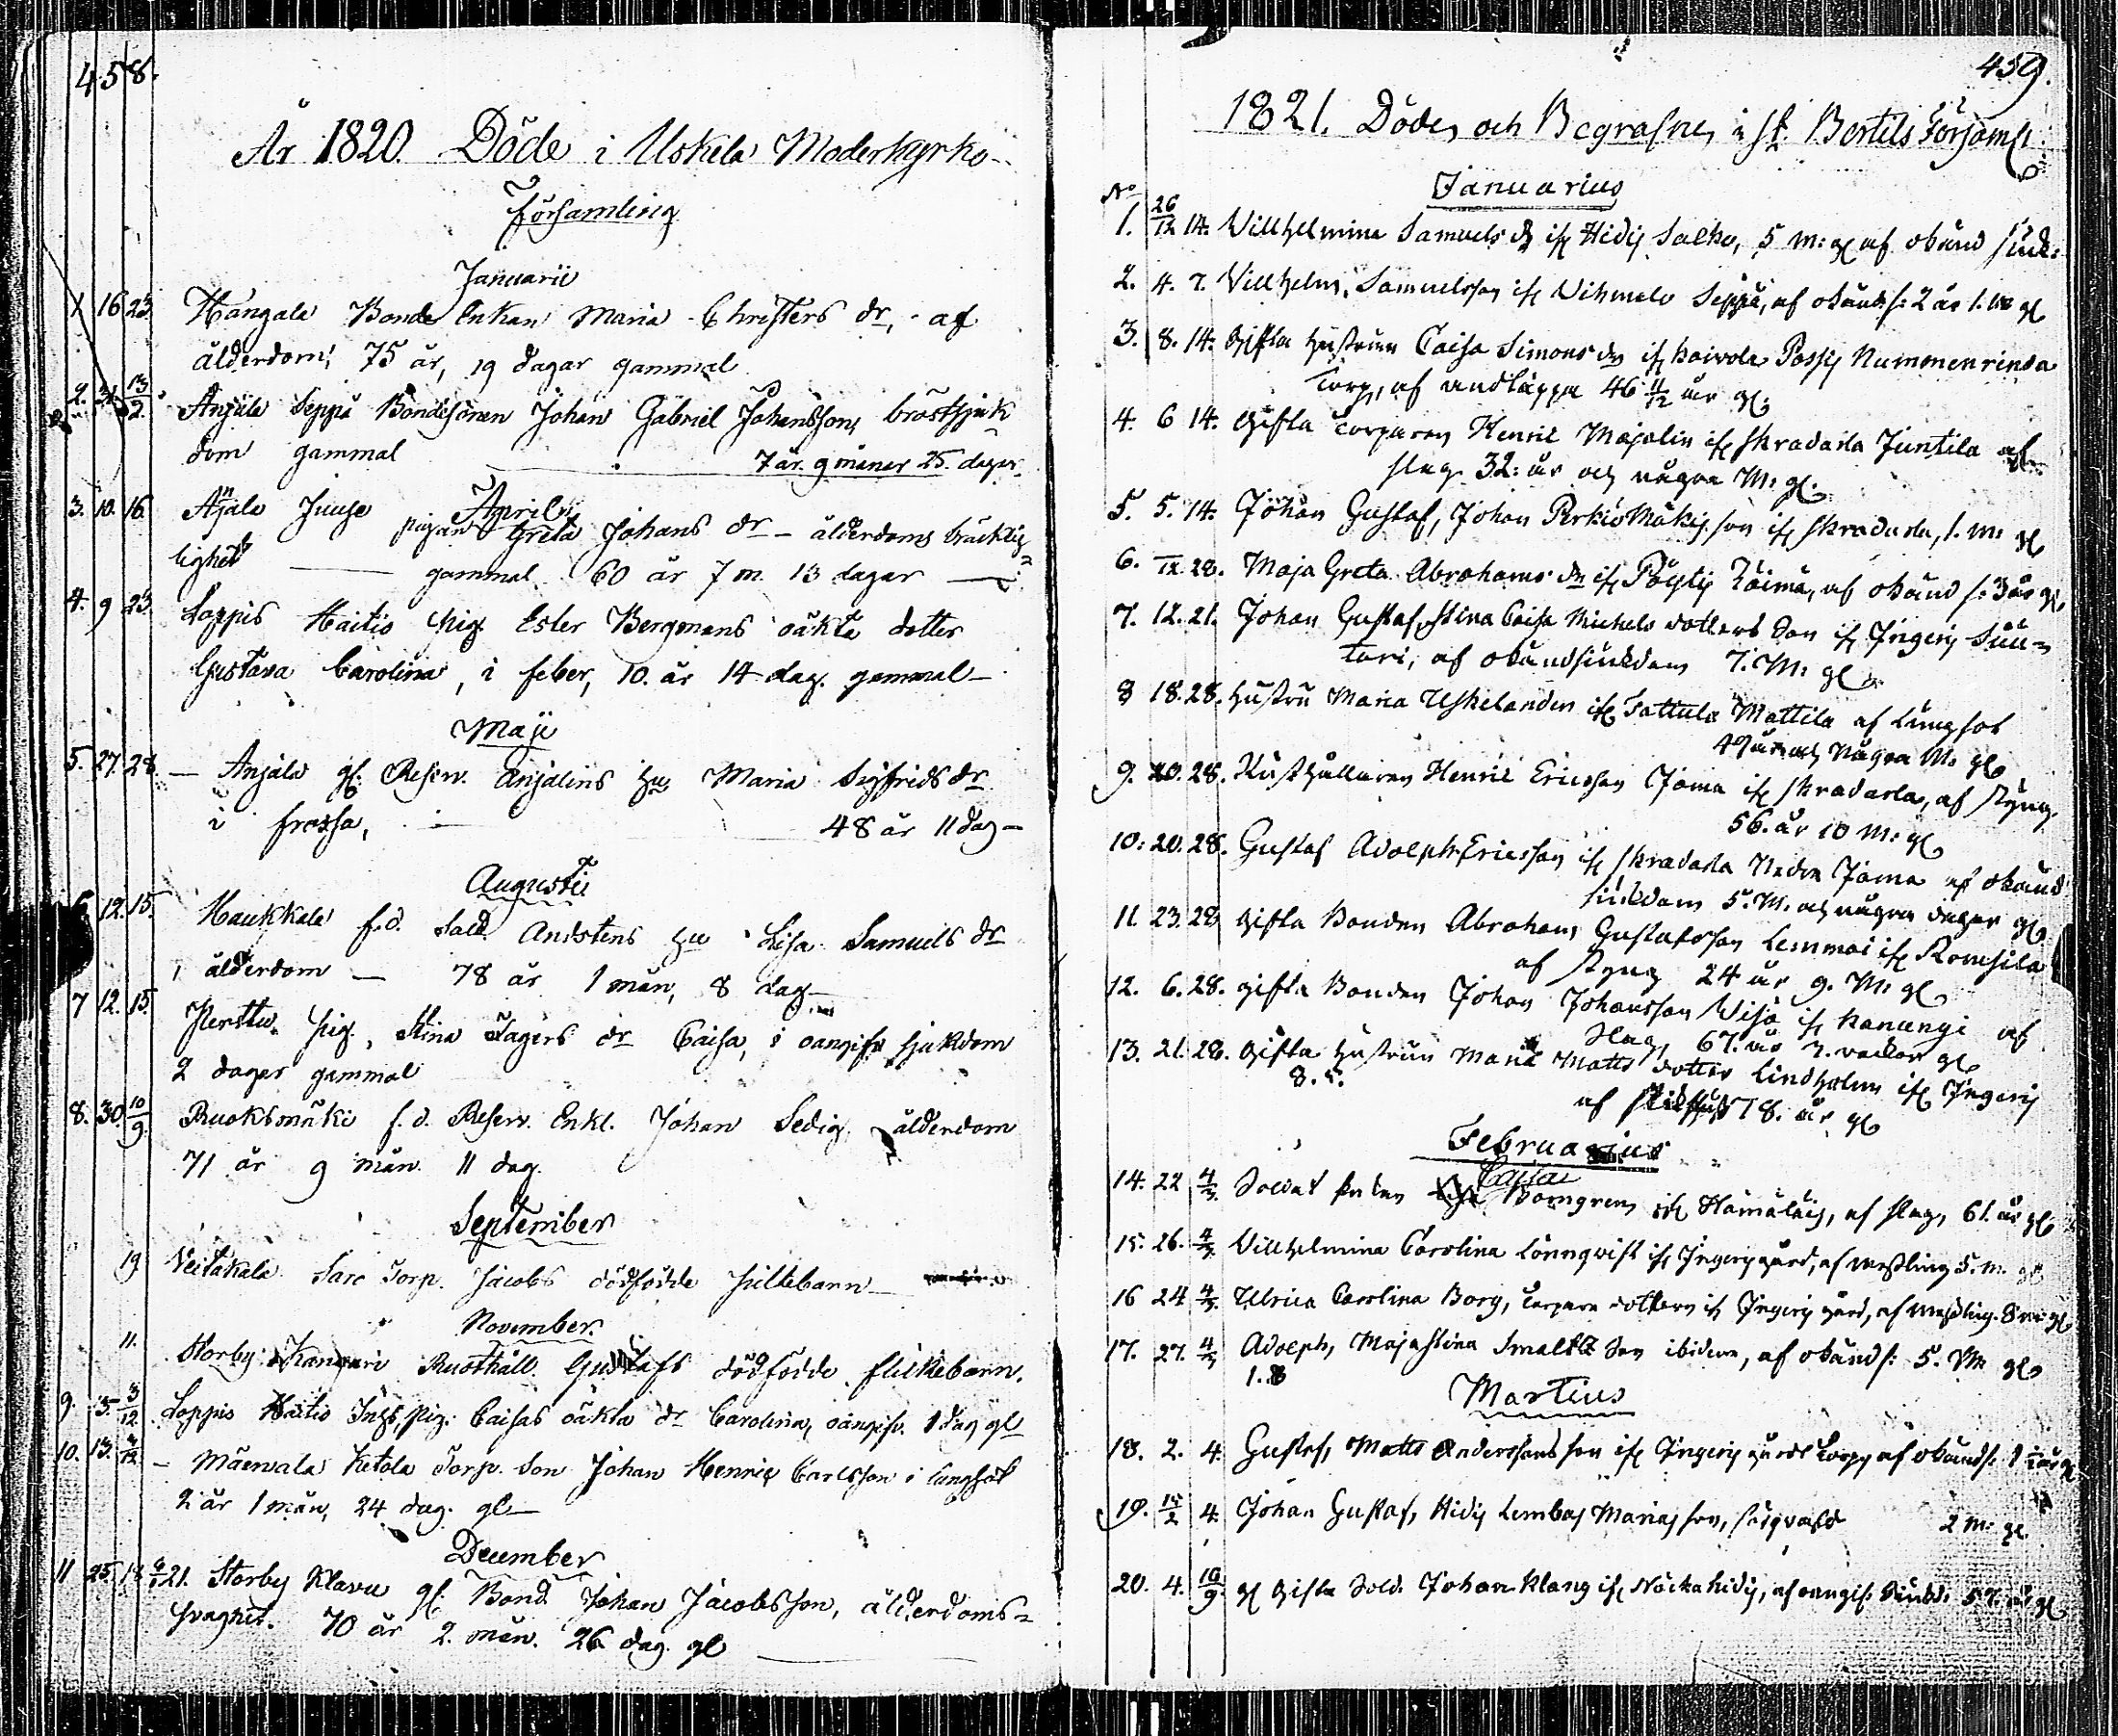 458.
År 1820. Döde i Uskela Moderkyrko-
Församling
Januarii
1 16 23. Hangala Bonde Enkan Maria Christers dr, af
ålderdom, 75 år, 19 dagar gammal
2. 31. 13/2. Anjala Seppä Bondesonen Johan Gabriel Johansson, bröstsjuk
dom gammal 7 år. 9 måner 25. dagar.
Aprilis
3. 10. 16. Anjala Juuse pigan Greta Johans dr - ålderdoms bräcklig=
lighet gammal 60 år 7 m. 13 dagar
4. 9 23. Loppis Haitio pig. Ester Bergmans oäkta dotter
Gustava Carolina, i feber, 10. år 14 dag. gammal
Maji
5. 27. 28. Anjala gl. Reserv. Anjalins hu Maria Sigfrids dr
i frossa, 48 år 11 dag
Augusti
6. 12. 15. Haukkala f.d. Sold. Andstens hu Lisa Samuels dr
i ålderdom 78 år 1 mån, 8 dag
7 12. 15. pig. Stina dr Caisa, i oangifn sjukdom
2 dagar gammal
8. 30 10/9. Ruoksmäki f.d. Reserv. Enkl. Johan Sedig, ålderdom
71 år 9 mån. 11 dag.
September
19 Veitakala Torp. Jacobs dödfödde
November.
11. Storby Rusthåll. Gustafs dödfödde flickebarn.
9. 3/12. Loppis Haitio Inhs. pig. Caisas oäkta dr Carolina, oangifv. 1 dag gl
10. 13. Ketola Torp. Son Johan Henric Carlsson i lungsot
2 år 1 mån, 24 dag. gl
December
11 25. 21. Storby Klavu gl. Bond. Johan Jacobsson, ålderdoms=
svaghet. 70 år 2. mån. 26 dag. gl
459.
1821. Döde och Begrafne i St. Bertils Församl.
Januarius
No
1. 26/12 14. Villhelmina Samuels dr ifr. Hidis Salko, 5 m: gl af okänd sjuk:
2. 4. 7. Villhelm Samuelsson ifr. Vihmalo Seppä, af okänd s: 2 år 1. m gl
3. 8. 14. Gifta hustrun Caisa Simons dr ifr. Kaivola Nummenrinda
Torp, af 46 11/12 år gl.
4. 6 14. Gifta Torparen Henric Majalin ifr. Skradarla Juntila af
slag 32: år och några M: gl.
5. 5. 14. Johan Gustaf, Johan Perkiömäkis son ifr. Skradarla, 1. m: gl
6. 28. Maja Greta Abrahams dr ifr. Pöyty af okänd s: 3 år gl.
7. 12. 21. Johan Gustaf, Stina Caisa Michels dotters Son ifr. Ingeris Suu=
tari, af okänd sjukdom 7. M: gl
8 18. 28. Hustru Maria Uskelander ifr. Tattula Mattila af lungsot
49 år och några M: gl
9. 20. 28. Rusthållaren Henric Ericsson Joma ifr. Skradarla, af styng.
56. år 10 M: gl
10. 20. 28. Gustaf Adolph Ericsson ifr. Skradarla Nedre Joma af okänd
sjukdom 5. M. och några dagar gl
11. 23. 28 Gifta Bonden Abraham Gustafsson Lemmoi ifr. Romsila
af styng 24 år 9. M: gl
12. 6. 28. Gifta Bonden Johan Johansson Visa ifr. Kanungi af
slag, 67. år 7. veckor gl
13. 21. 28. Gifta hustrun Maria Matts dotter Lindholm ifr. Ingeris
8. 5.
af 78. år gl
Februarius
Caisa
14. 22 4/3. Soldat Enkan Borngren, ifr. Hämäläis, af slag, 61. år gl
15. 26. 4/3. Villhelmina Carolina Lönnqvist ifr. Ingeris gård, af messling 5. m. gl
16 24 4/3. Ulrica Carolina Borg, Torpare dotter ifr. Ingeris gård, af messling. 8 m: gl
17. 27. 4/3 Adolph, Maja Stina Smaltz Son ibidem, af okänd s: 5. M: gl
1. 8
Martius
18. 2. 4. Gustaf, Matts Anderssons son ifr. Ingeris gårds Torp, af okänd s: 1 år gl
19. 15/2 4. Johan Gustaf, Hidis Lembas Marias son, 2 M: gl.
20. 4. 10/9. gl Gifta Sold. Johan Klang ifr. Näckahidis, af oangif: sjukd: 57. år gl